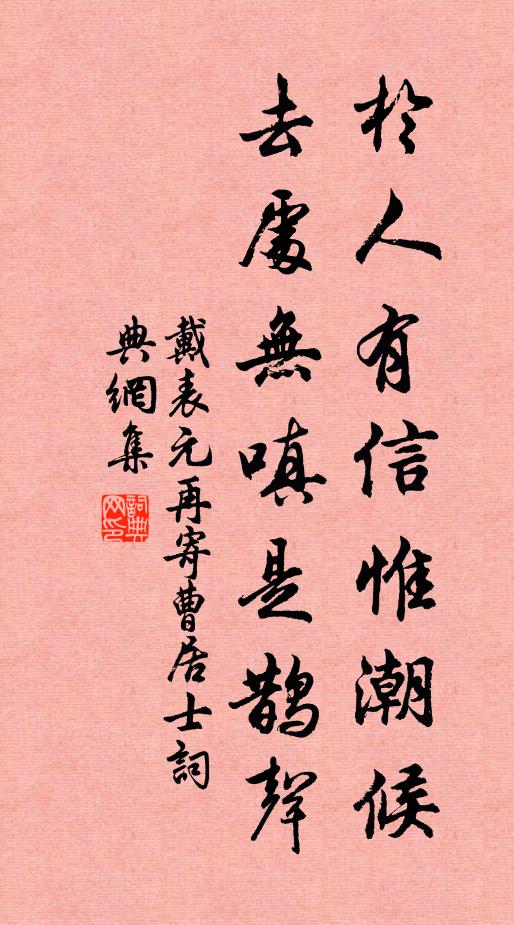 於人有信惟潮候
去處無嗔是鵲聲
戴表元再寄曹居士詞
典網集
詞典
网印